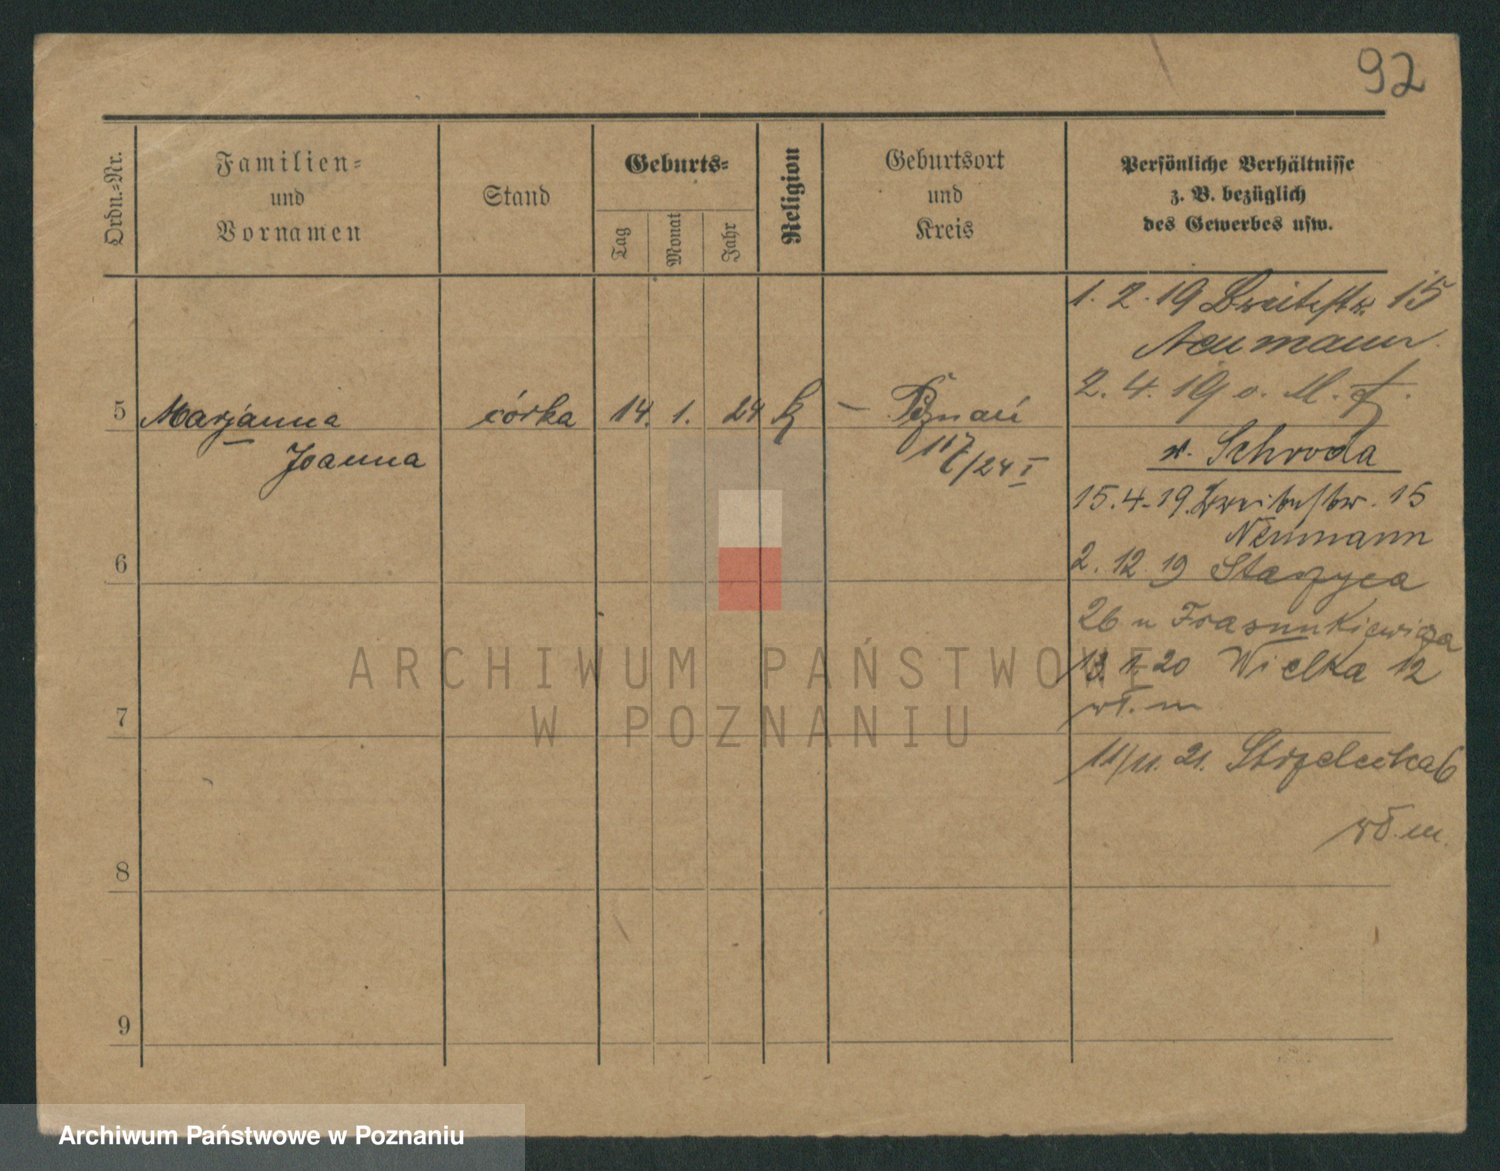 92
Ordn.-Nr.
Familien-
und
Vornamen
Stand
Geburts-
Tag
Monat
Jahr
Religion
Geburtsort
und
Kreis
Persönliche Verhältnisse
z. B. bezüglich
des Gewerbes usw.
1. 2. 19 Breitestr. 15
Neumann
2. 4. 19 v.
5 Marjanna córka 14. 1. 24 k – Poznań
Joanna
/24 I
Schroda
15. 4. 19. Breitestr. 15
Neumann
6
2. 12. 19 Staszyca
26 u Frasunkiewicza
13. 1. 20 Wielka 12
wł. m
7
11/11. 21. Strzelecka 6
wł. m.
8
9
ARCHIWUM PAŃSTWOWE
W POZNANIU
Archiwum Państwowe w Poznaniu